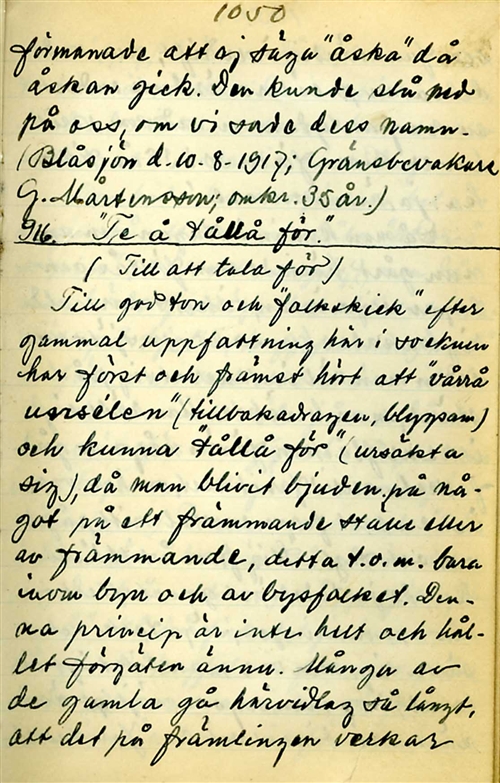 1050
förmanade att ej säga "åska" då
åskan gick. Den kunde slå ned
på oss, om vi sade dess namn.
(Blåsjön d. 10-8-1917; Gränsbevakare
G. Mårtensson; omkr. 35 år.)
916. "Te å tållå för."
( Till att tala för)
Till god ton och "folkskick" efter
gammal uppfattning här i socknen
har först och främst hört att "vårrå
usrsélen" (tillbakadragen, blygsam)
och kunna "tållå för" (ursäkta
sig), då man blivit bjuden på nå-
got på ett främmande ställe eller
av främmande, detta t.o.m. bara
inom byn och av bysfolket. Den-
na princip är inte helt och hål-
let förgäten ännu. Många av
de gamla gå härvidlag så långt,
att det på främlingen verkar